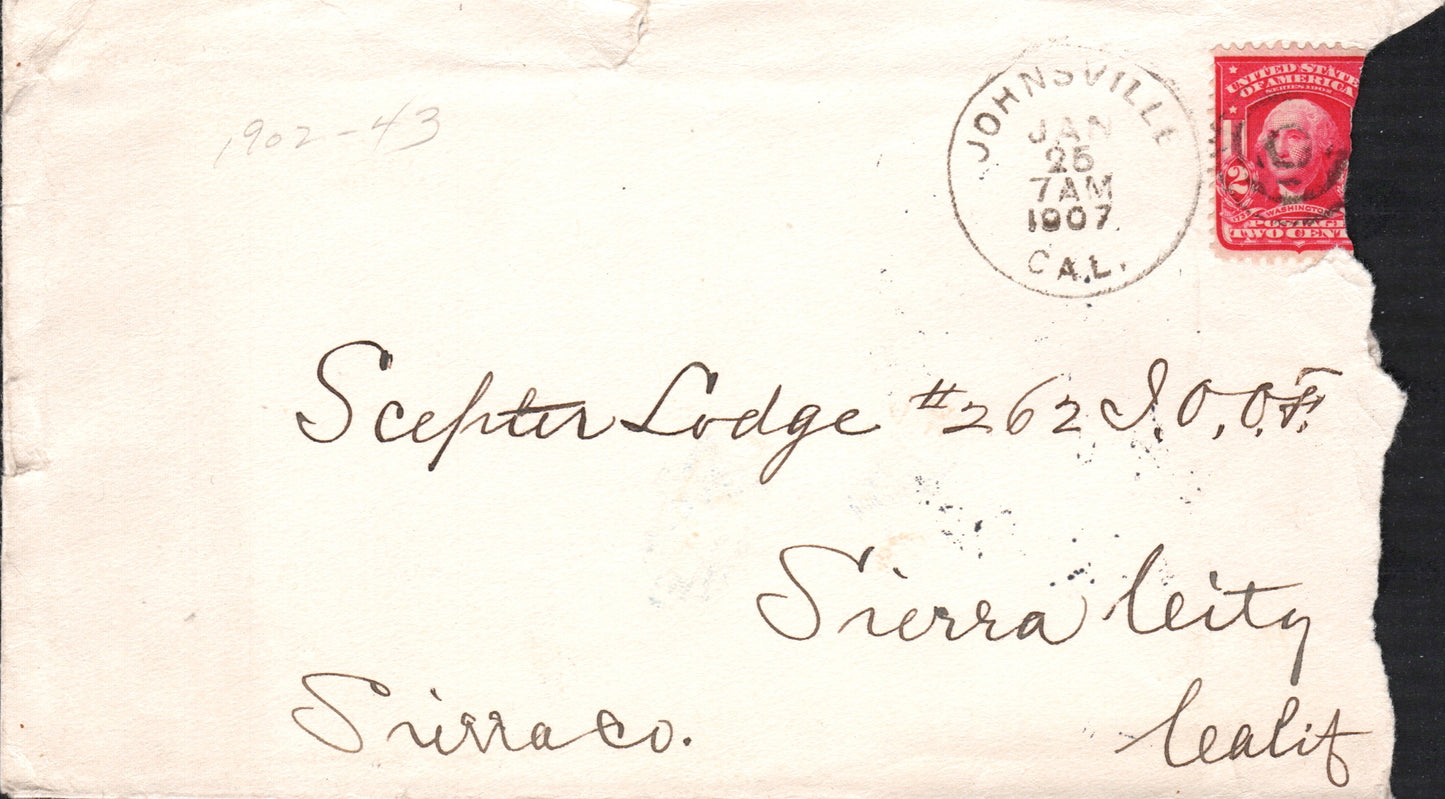 1902-43
JOHNSVILLE
JAN
25
7AM
1907
CAL.
UNITED STATE
OF AMERICA
SERIES 1902
2
WASHINGTON
TWO CENT
Scepter Lodge #262 I.O.O.F.
Sierra City
Sierra Co.
Calif